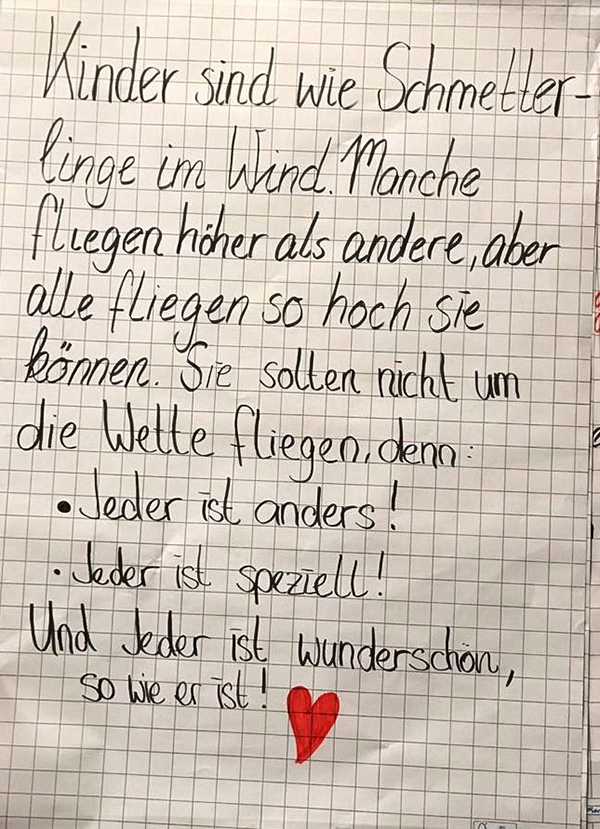 Kinder sind wie Schmetter-
linge im Wind. Manche
fliegen höher als andere, aber
alle fliegen so hoch sie
können. Sie sollten nicht um
die Wette fliegen, denn:
• Jeder ist anders!
• Jeder ist speziell!
Und Jeder ist wunderschön,
so wie er ist!